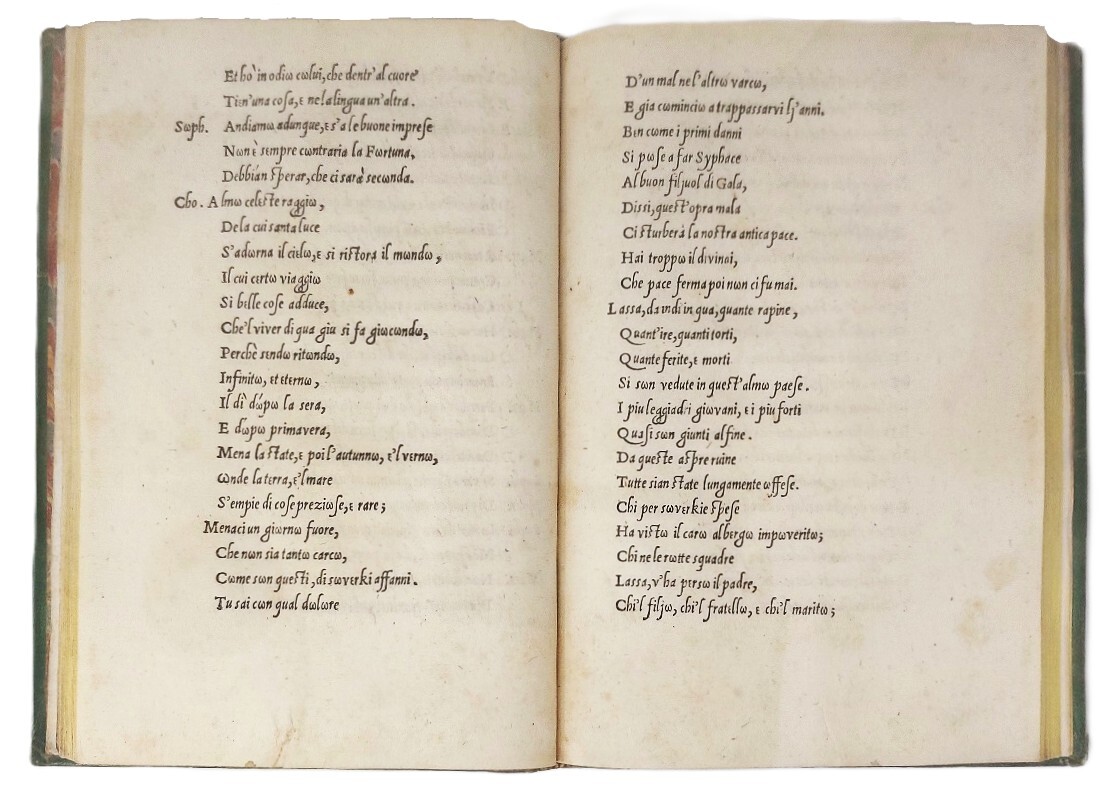 Et hò in odiω cωlui, che dentr'al cuore
Tien'una cosa, ε ne la lingua un'altra.
Sωph. Andiamω adunque, ε s'a le buone imprese
Nωn è sεmpre cωntraria la Fωrtuna,
Debbiάn sperar, che ci sarà secωnda.
Chω. Almω celεste raggiω,
De la cui santa luce
S'adωrna il ciεlω, ε si ristora il mωndω,
Il cui cεrtω viaggiω
Si bεlle cose adduce,
Che'l viver di qua giu si fa giωcωndω,
Perchè sεndω ritωndω,
Infinitω, et etεrnω,
Il dì dώpω la sera,
E dωpω primavera,
Mena la state, ε poi l'autunnω, ε'l vεrnω,
Ωnde la tεrra, ε'l mare
S'empie di cose preziωse, ε rare;
Menaci un giωrnω fuore,
Che nωn sia tantω carcω,
Cωme sωn questi, di sωvεrki affanni.
Tu sai cωn qual dωlωre
D'un mal ne l'altrω varcω,
E gia cωminciω a trappassarvi lj'anni.
Bεn cωme i primi danni
Si pωse a far Syphace
Al buon filjuol di Gala,
Dissi, quest'opra mala
Ci sturberà la nostra antica pace.
Hai troppω il divinai,
Che pace ferma poi nωn ci fu mai.
Lassa, da indi in qua, quante rapine,
Quant'ire, quanti torti,
Quante ferite, ε morti
Si sωn vedute in quest'almω paεse.
I piu leggiadri giωvani, ε i piu forti
Quasi sωn giunti al fine.
Da queste aspre ruine
Tutte sian state lungamente ωffese.
Chi per sωvεrkie spese
Ha vistω il carω albergω impωveritω;
Chi ne le rωtte squadre
Lassa, v'ha persω il padre,
Chi'l filjω, chi'l fratεllω, ε chi'l maritω;